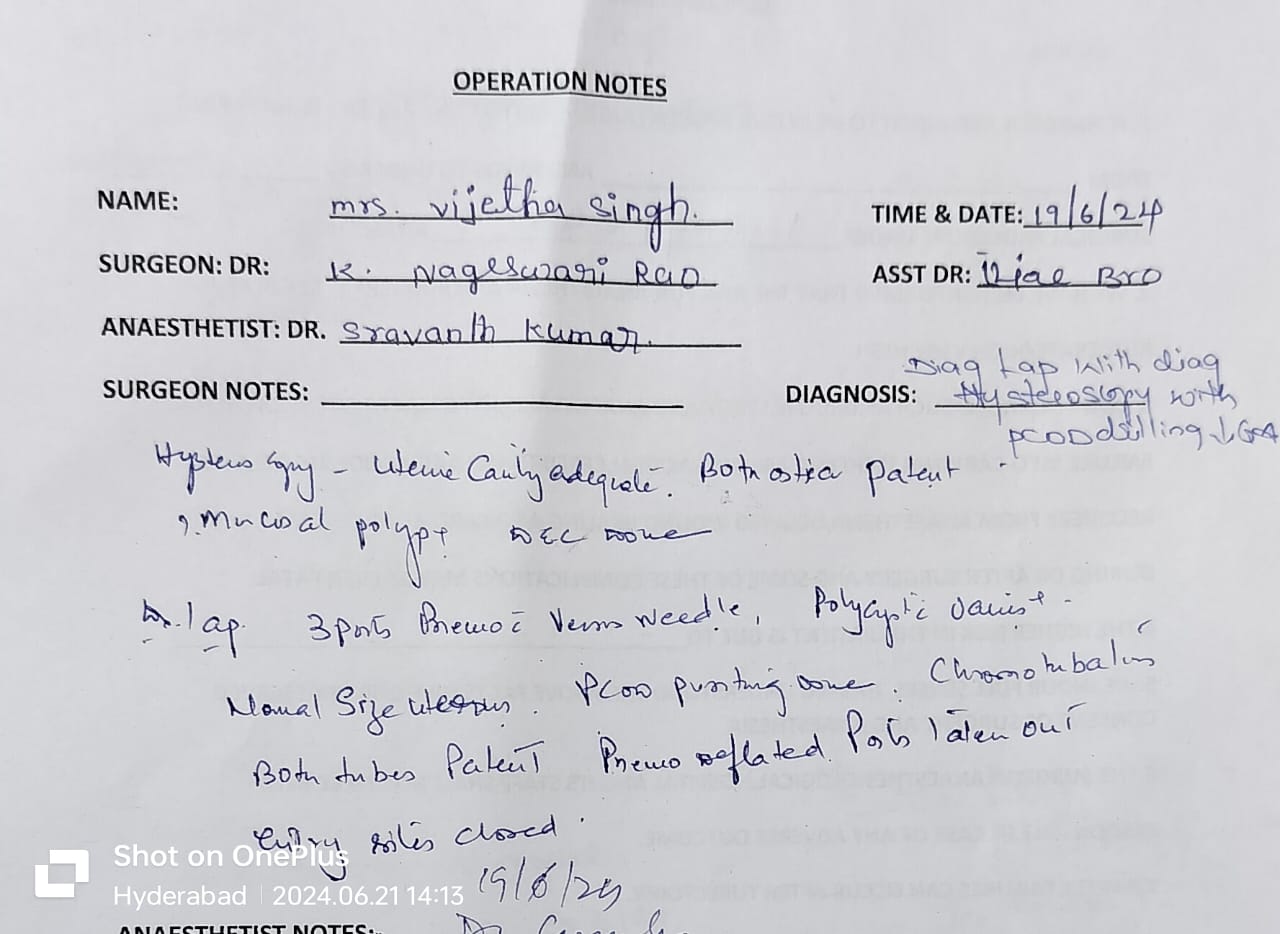 OPERATION NOTES
NAME: mrs. vijetha singh. TIME & DATE: 19/6/24
SURGEON: DR: K. Nageswari Rao ASST DR: Bro
ANAESTHETIST: DR. Sravanth Kumar.
SURGEON NOTES: DIAGNOSIS: Diag Lap with diag
Hysteroscopy with
PCOD drilling GA
Hysteroscopy - uterine Cavity adequate. Both ostia patent
, Mucosal polyp+ D&C Done
lap. 3 Ports Pnemo Veress Needle, Polycystic
Normal Size uterus. PCOD done. Chromotubation
Both tubes Patent Pnemo deflated. Ports taken out
entry sites closed.
19/6/24
Shot on OnePlus
Hyderabad | 2024.06.21 14:13
ANAESTHETIST NOTES: Dr